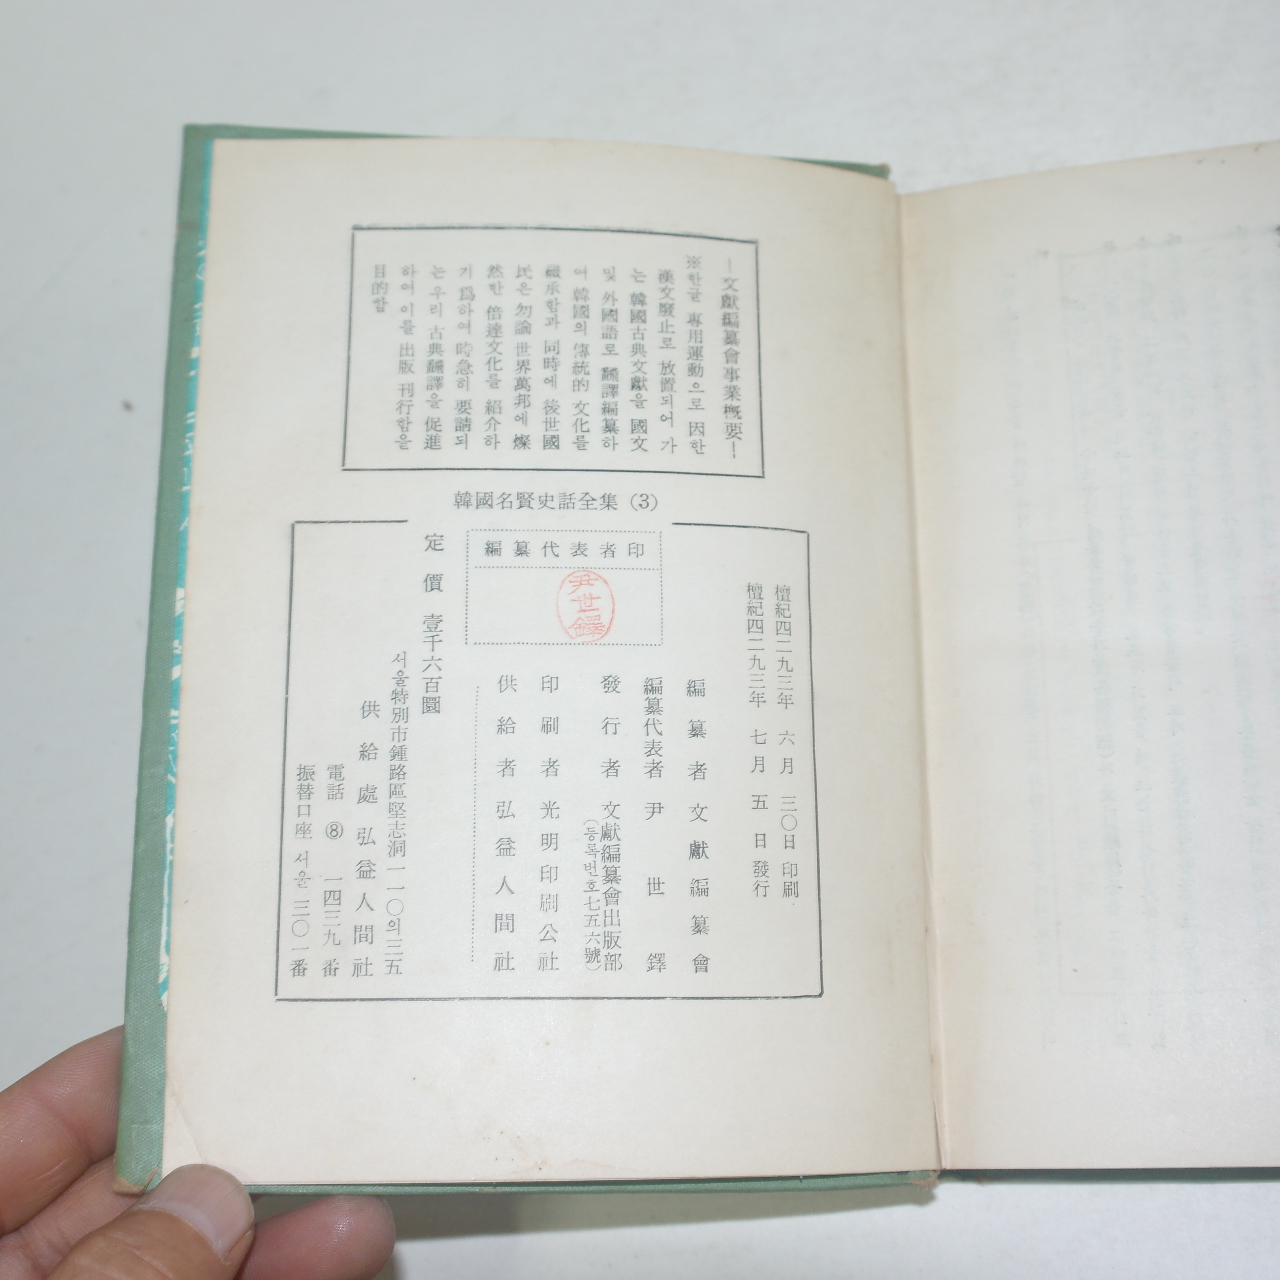 ―文獻編纂會事業槪要―
※한글 專用運動으로 因한
漢文廢止로 放置되어 가
는 韓國古典文獻을 國文
및 外國語로 飜譯編纂하
여 韓國의 傳統的 文化를
繼承함과 同時에 後世國
民은 勿論 世界萬邦에 燦
然한 倍達文化를 紹介하
기 爲하여 時急히 要請되
는 우리 古典飜譯을 促進
하여 이를 出版 刊行함을
目的함
韓國名賢史話全集 (3)
檀紀四二九三年 六月 三〇日 印刷
檀紀四二九三年 七月 五日 發行
編纂代表者印
尹世鐸
編纂者 文獻編纂會
編纂代表者 尹世鐸
發行者 文獻編纂會出版部
(등록번호七五六號)
印刷者 光明印刷公社
供給者 弘益人間社
定價 壹千六百圜
서울特別市鍾路區堅志洞一一〇의三五
供給處 弘益人間社
電話 ⑧ 一四三九番
振替口座 서울 三〇一番